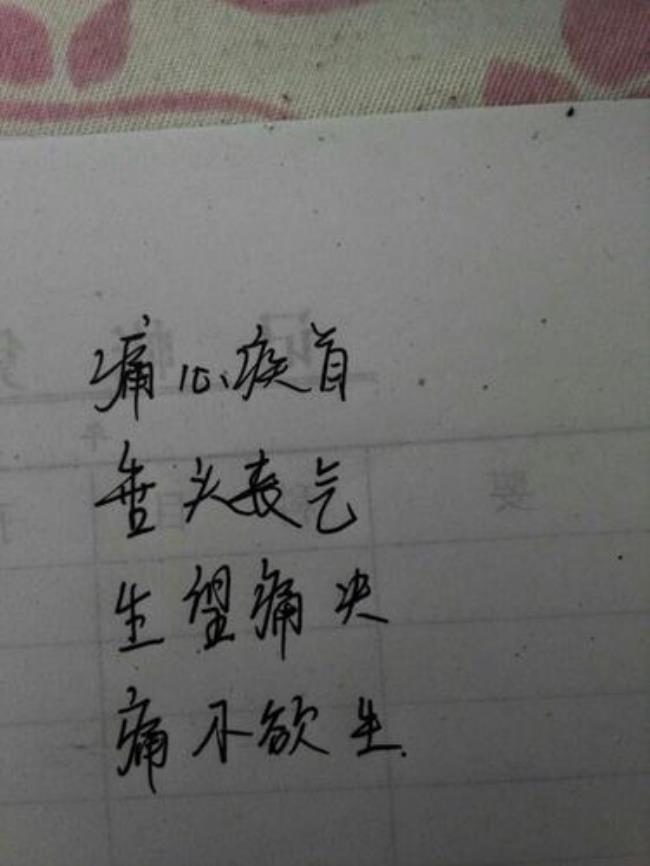 痛心疾首
垂头丧气
生望痛决
痛不欲生.